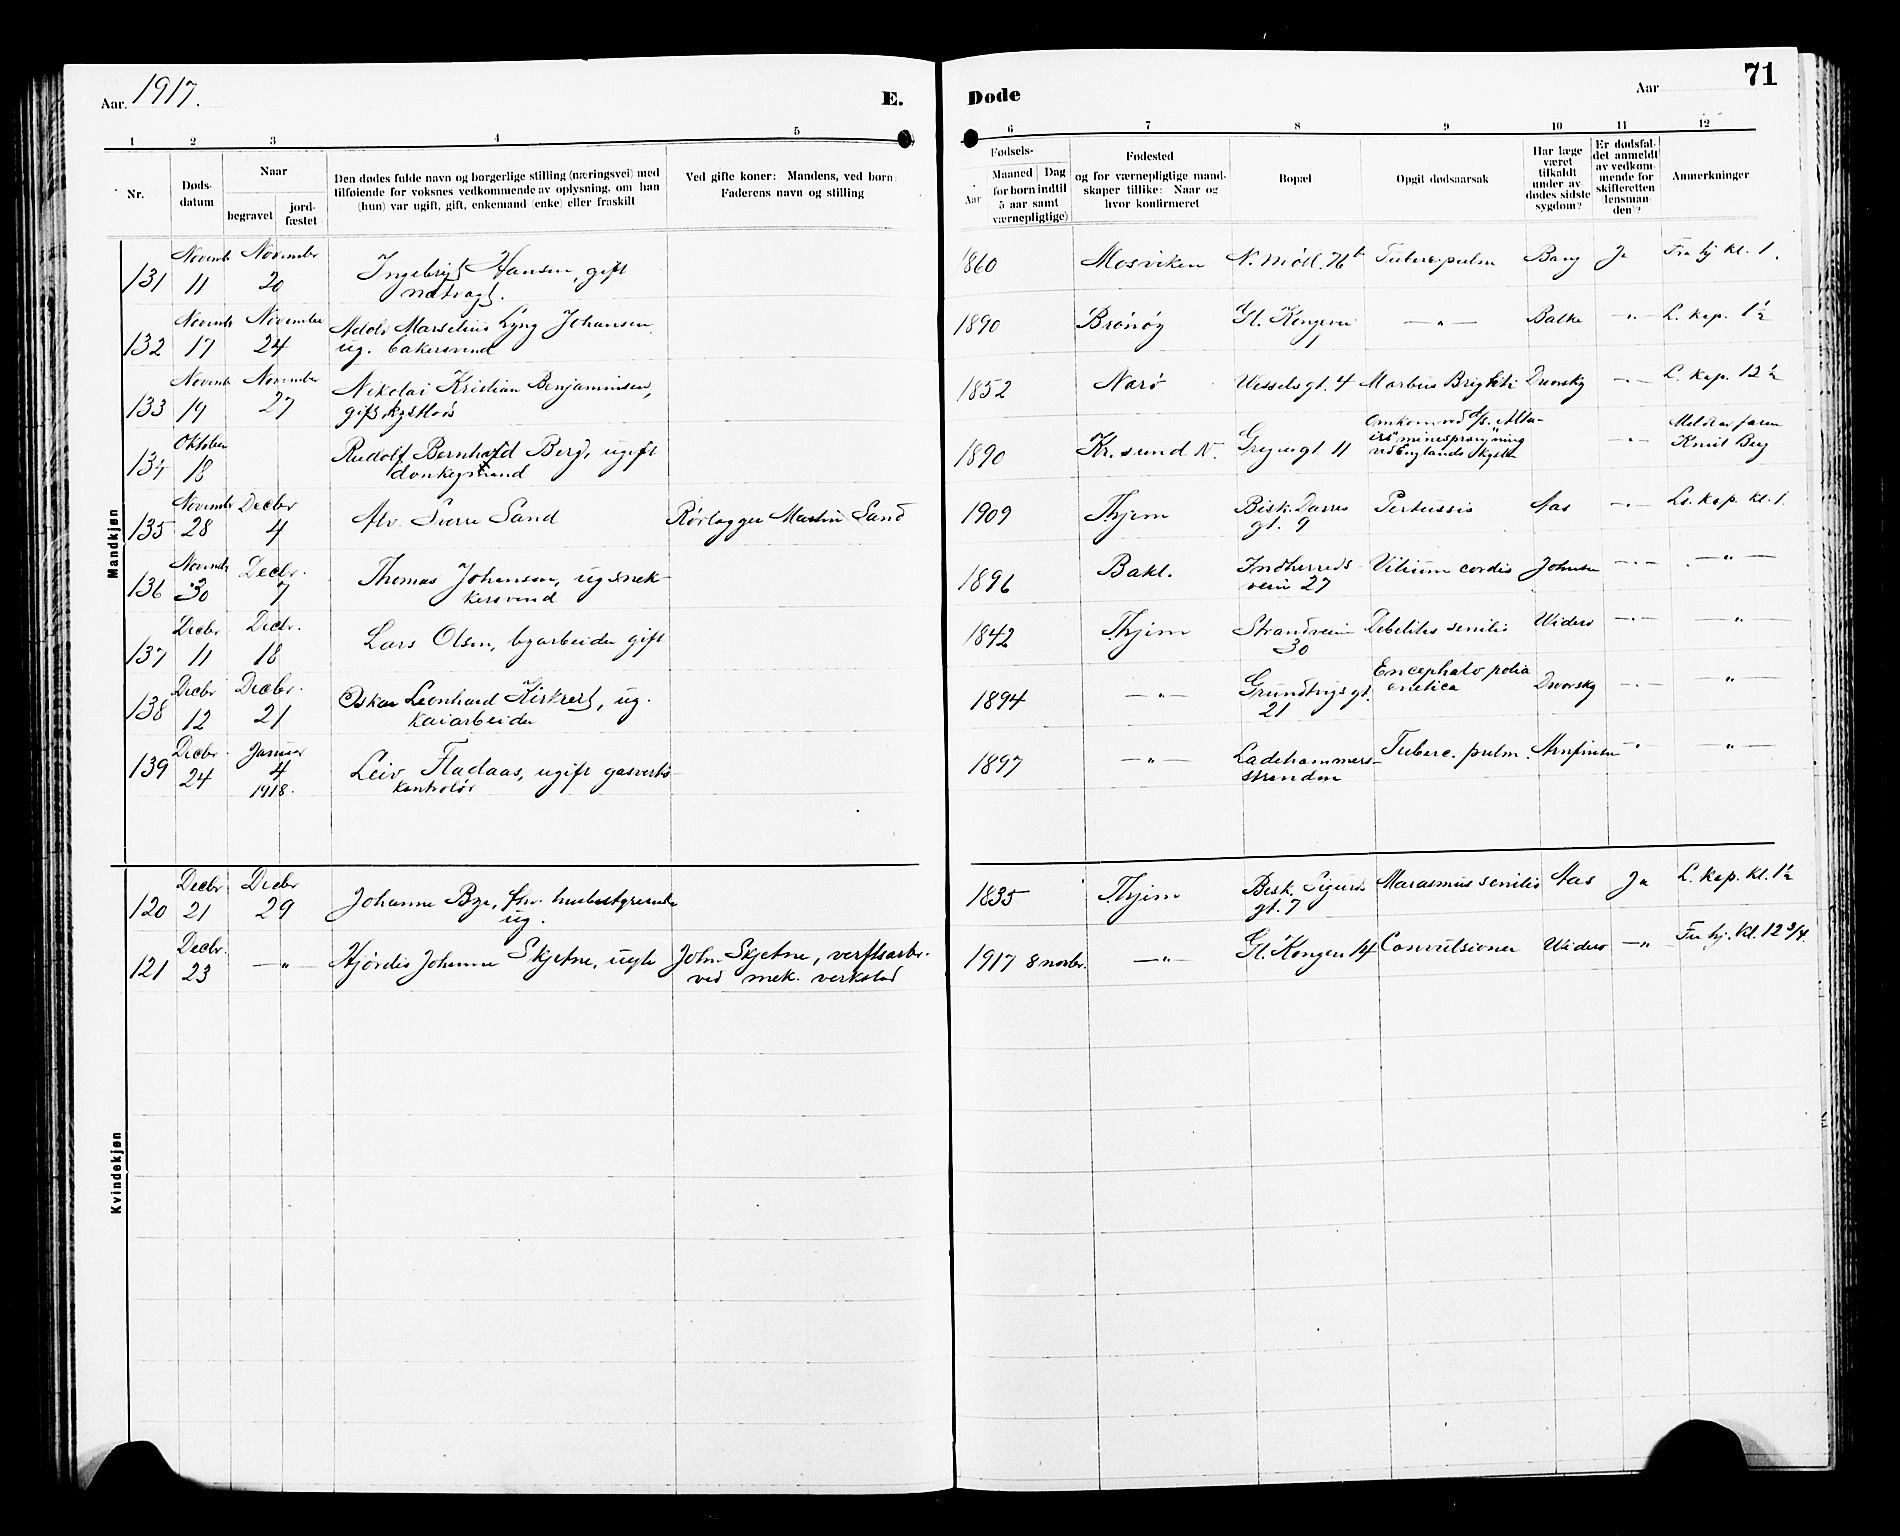 Aar. 1917.
E.
Døde
Aar
71
1 2 3 4 5
6 7 8 9 10 11 12
Nr.
Døds-
datum
Naar
begravet
jord-
fæstet
Den dødes fulde navn og borgerlige stilling (næringsvei) med
tilføiende for voksnes vedkommende av oplysning, om han
(hun) var ugift, gift, enkemand (enke) eller fraskilt
Ved gifte koner: Mandens, ved børn:
Faderens navn og stilling
Fødsels-
Aar
Maaned Dag
(for børn indtil
5 aar samt
værnepligtige)
Fødested
og for værnepligtige mand-
skaper tillike: Naar og
hvor konfirmeret
Bopæl
Opgit dødsaarsak
Har læge
været
tilkaldt
under av-
dødes sidste
sygdom?
Er dødsfal-
det anmeldt
av vedkom-
mende for
skifteretten
(lensman-
den)?
Anmerkninger
Mandkjøn
131 Novembr 11 November 20 Ingebrigt Hansen, gift
natvagt.
1860 Mosviken N. Møll. 76b Tuberc. pulm Bang Ja Fra hj kl. 1.
132 Novembr 17 November 24 Adolv Marselius Lyng Johansen
ug. bakersvend
1890 Brønøy Gl. Kongevei —„— Balke —„— L. kap. 1½
133 Novembr 19 November 27 Nikolai Kristian Benjaminsen,
gift
1852 Narö Wesselsgt. 4 Morbus Brightii Dvorsky —„— L. kap. 12½
134 Oktober 18 Rudolf Bernhard Berg, ugift
donkeymand
1890 Kr.sund N. gt 11 Omkom ved d/s. Alta-
irs minesprengning
ved Englands kyst
—„— Meldt av faren
Knut Berg
135 Novembr 28 Decbr 4 Alv. Sverre Sand Rørlægger Martin Sand
1909 Thjem Bisk. Darres
gt. 9
Pertussis Aas —„— Ls. kap. kl. 1.
136 Novembr 30 Decbr. 7 Thomas Johansen, ug snek-
kersvend
1896 Bakl. Indherreds-
vein 27
Vitium cordis Johnsen —„— —„—
137 Decbr 11 Decbr. 18 Lars Olsen, byarbeider gift
1842 Thjem Strandveien
30
Debilitas senilis Widerø —„— —„—
138 Decbr 12 Decbr. 21 Oskar Leonhard Kirkreit, ug.
kaiarbeider
1894 —„— Grundtvigs gt.
21
Encephalo Dvorsky —„— —„—
139 Decbr. 24 Januar 4
1918.
Leiv Fladaas, ugift gasverks-
kontrolør
1897 —„— Ladehammers-
stranden
Tuberc. pulm. Arnfinsen —„— —„—
Kvindekjøn
120 Decbr 21 Decbr 29 Johanne Bye, fhv. husbestyrerinde
ug.
1835 Thjem Bisk. Sigurds
gt. 7
Marasmus senilis Aas Ja L. kap. kl. 1½
121 Decbr. 23 —„— Hjørdis Johanne Skjetne, ugte John Skjetne, verftsarbr.
ved mek. verksted
1917 8 novbr. —„— Gl. Kongev 14 Convulsioner Widerø —„ Fra hj. kl. 12 3/4.